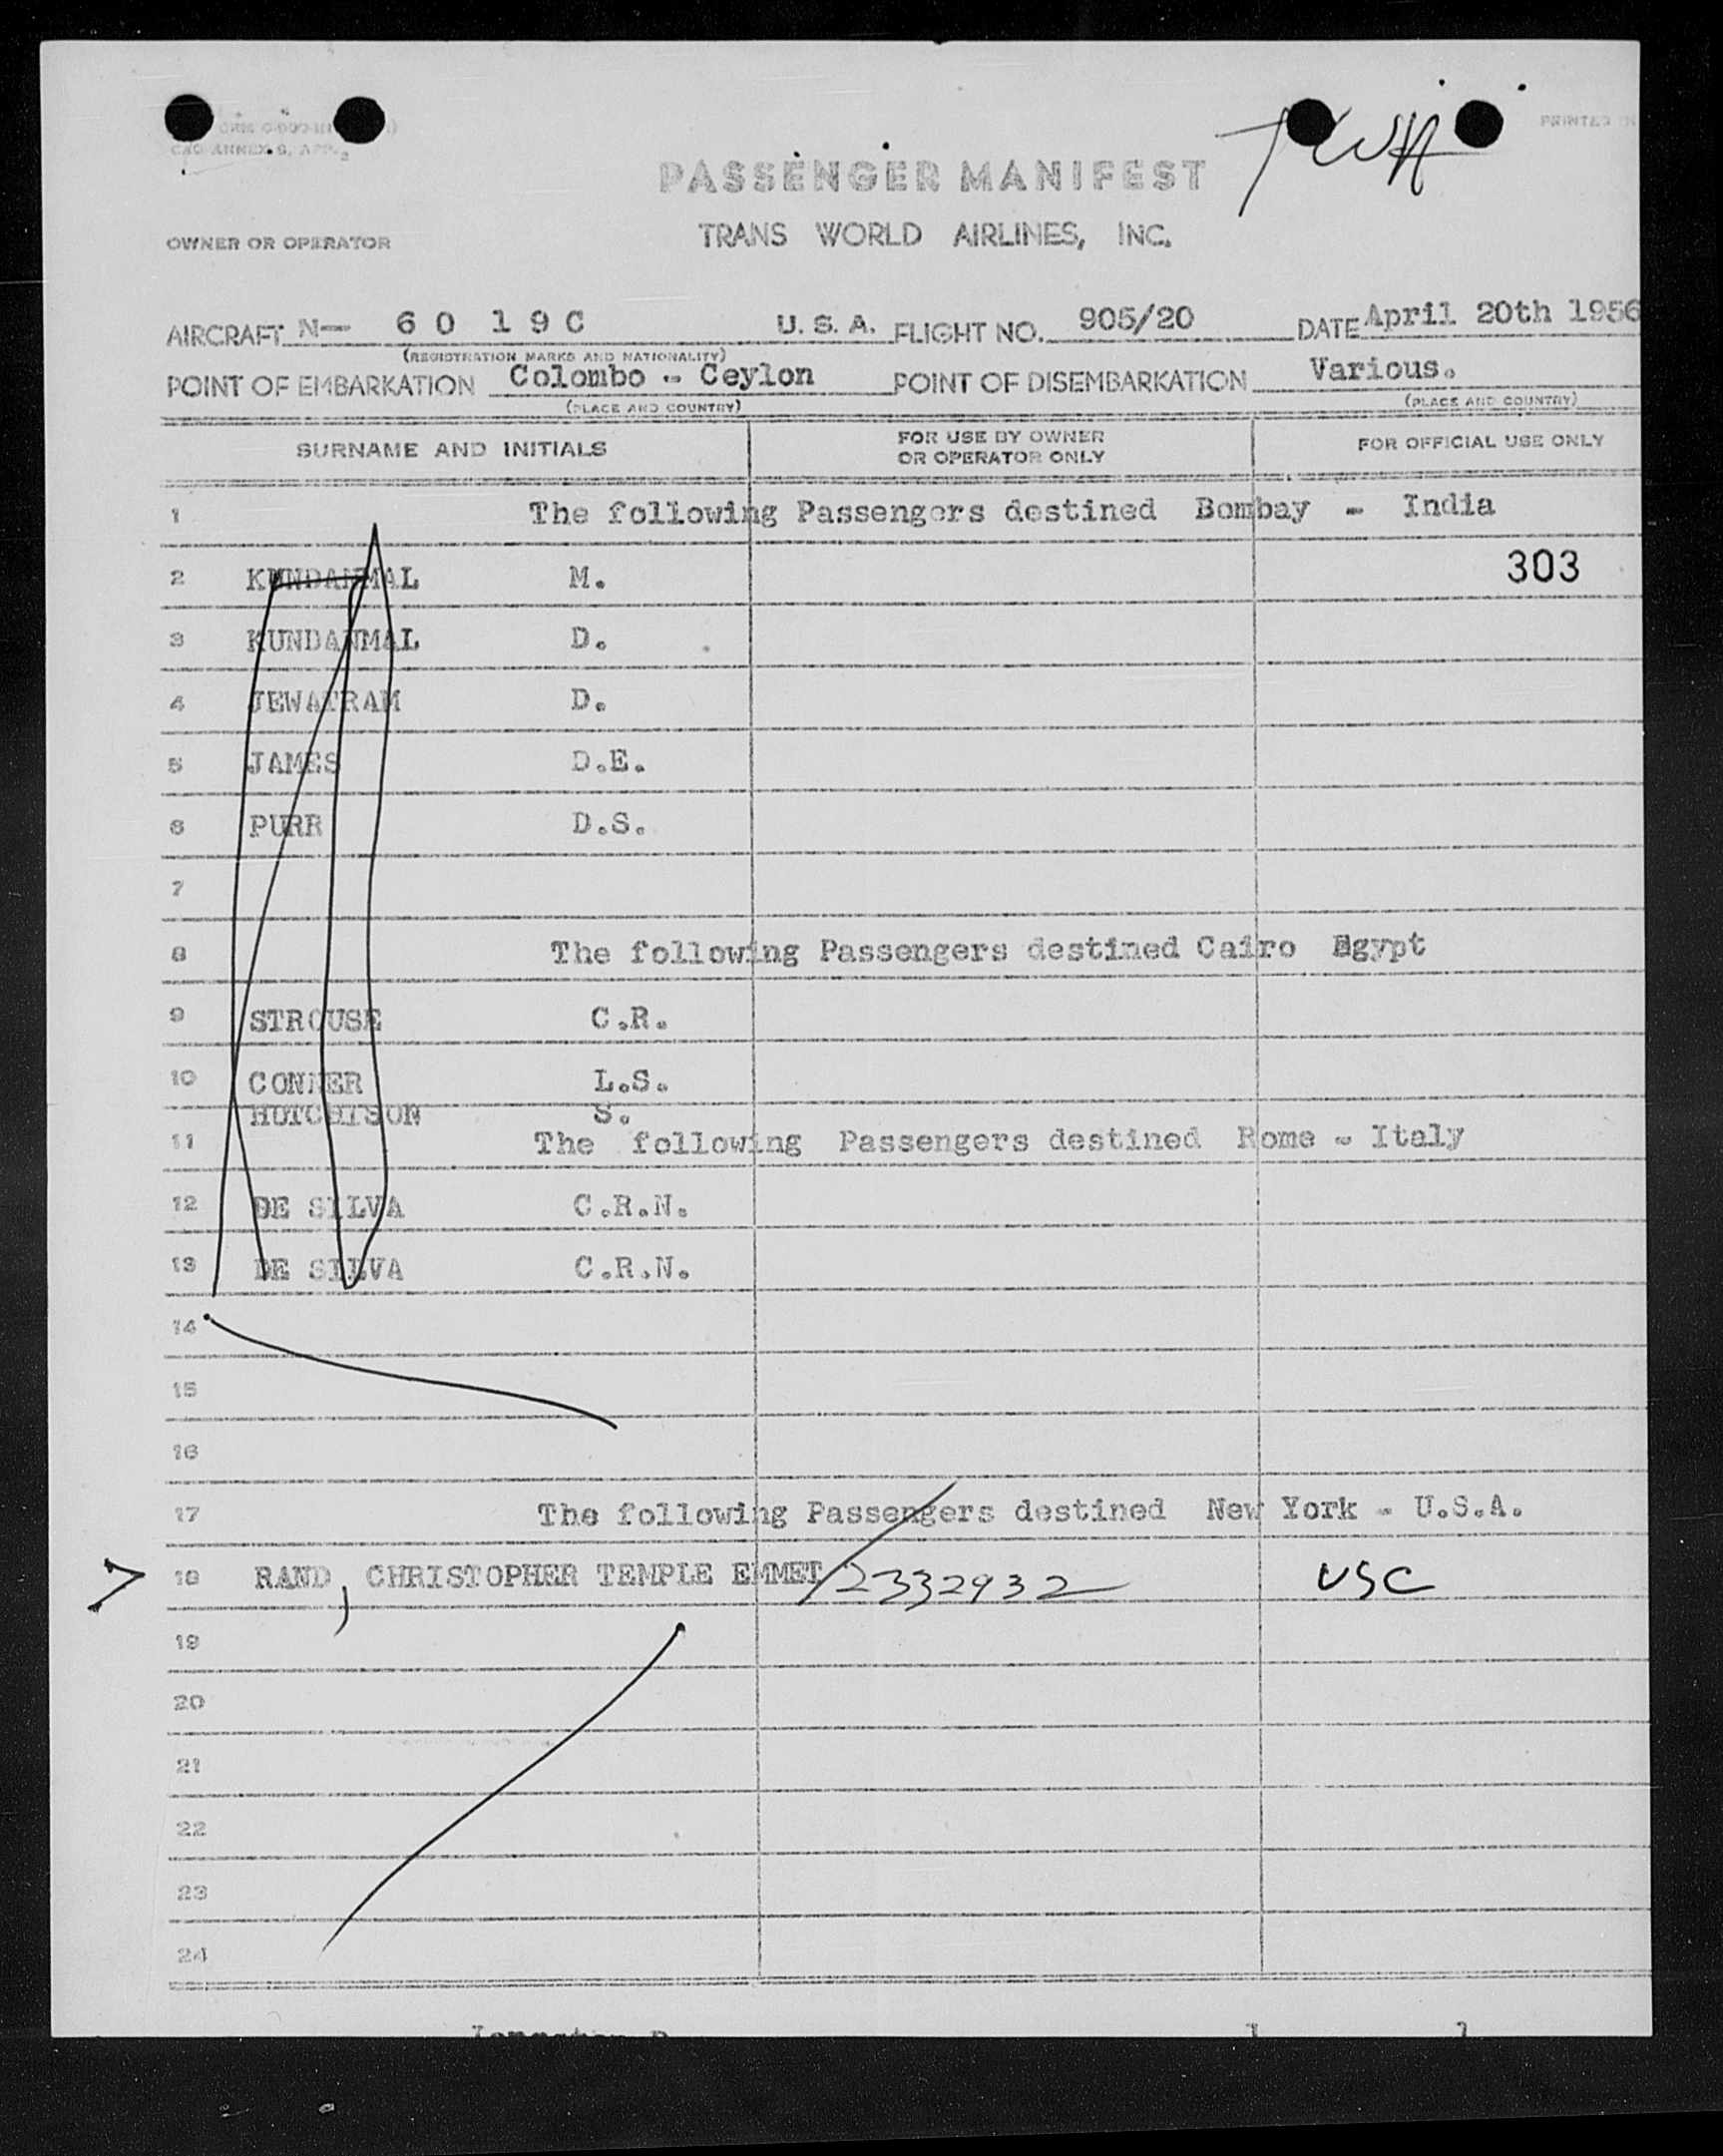 TWA
PRINTED IN
CAO ANNEX 9, APP. 2
PASSENGER MANIFEST
OWNER OR OPERATOR TRANS WORLD AIRLINES, INC.
AIRCRAFT N— 6 0 1 9 C U. S. A. FLIGHT NO. 905/20 DATE April 20th 1956
(REGISTRATION MARKS AND NATIONALITY)
POINT OF EMBARKATION Colombo - Ceylon POINT OF DISEMBARKATION Various.
(PLACE AND COUNTRY) (PLACE AND COUNTRY)
SURNAME AND INITIALS FOR USE BY OWNER OR OPERATOR ONLY FOR OFFICIAL USE ONLY
1 The following Passengers destined Bombay - India
2 KUNDANMAL M. 303
3 KUNDANMAL D.
4 JEWATRAM D.
5 JAMES D.E.
6 PURR D.S.
7
8 The following Passengers destined Cairo Egypt
9 STROUSE C.R.
10 CONNER L.S.
HUTCHISON S.
11 The following Passengers destined Rome - Italy
12 DE SILVA C.R.N.
13 DE SILVA C.R.N.
14
15
16
17 The following Passengers destined New York - U.S.A.
18 RAND, CHRISTOPHER TEMPLE EMMET 2332932 USC
19
20
21
22
23
24